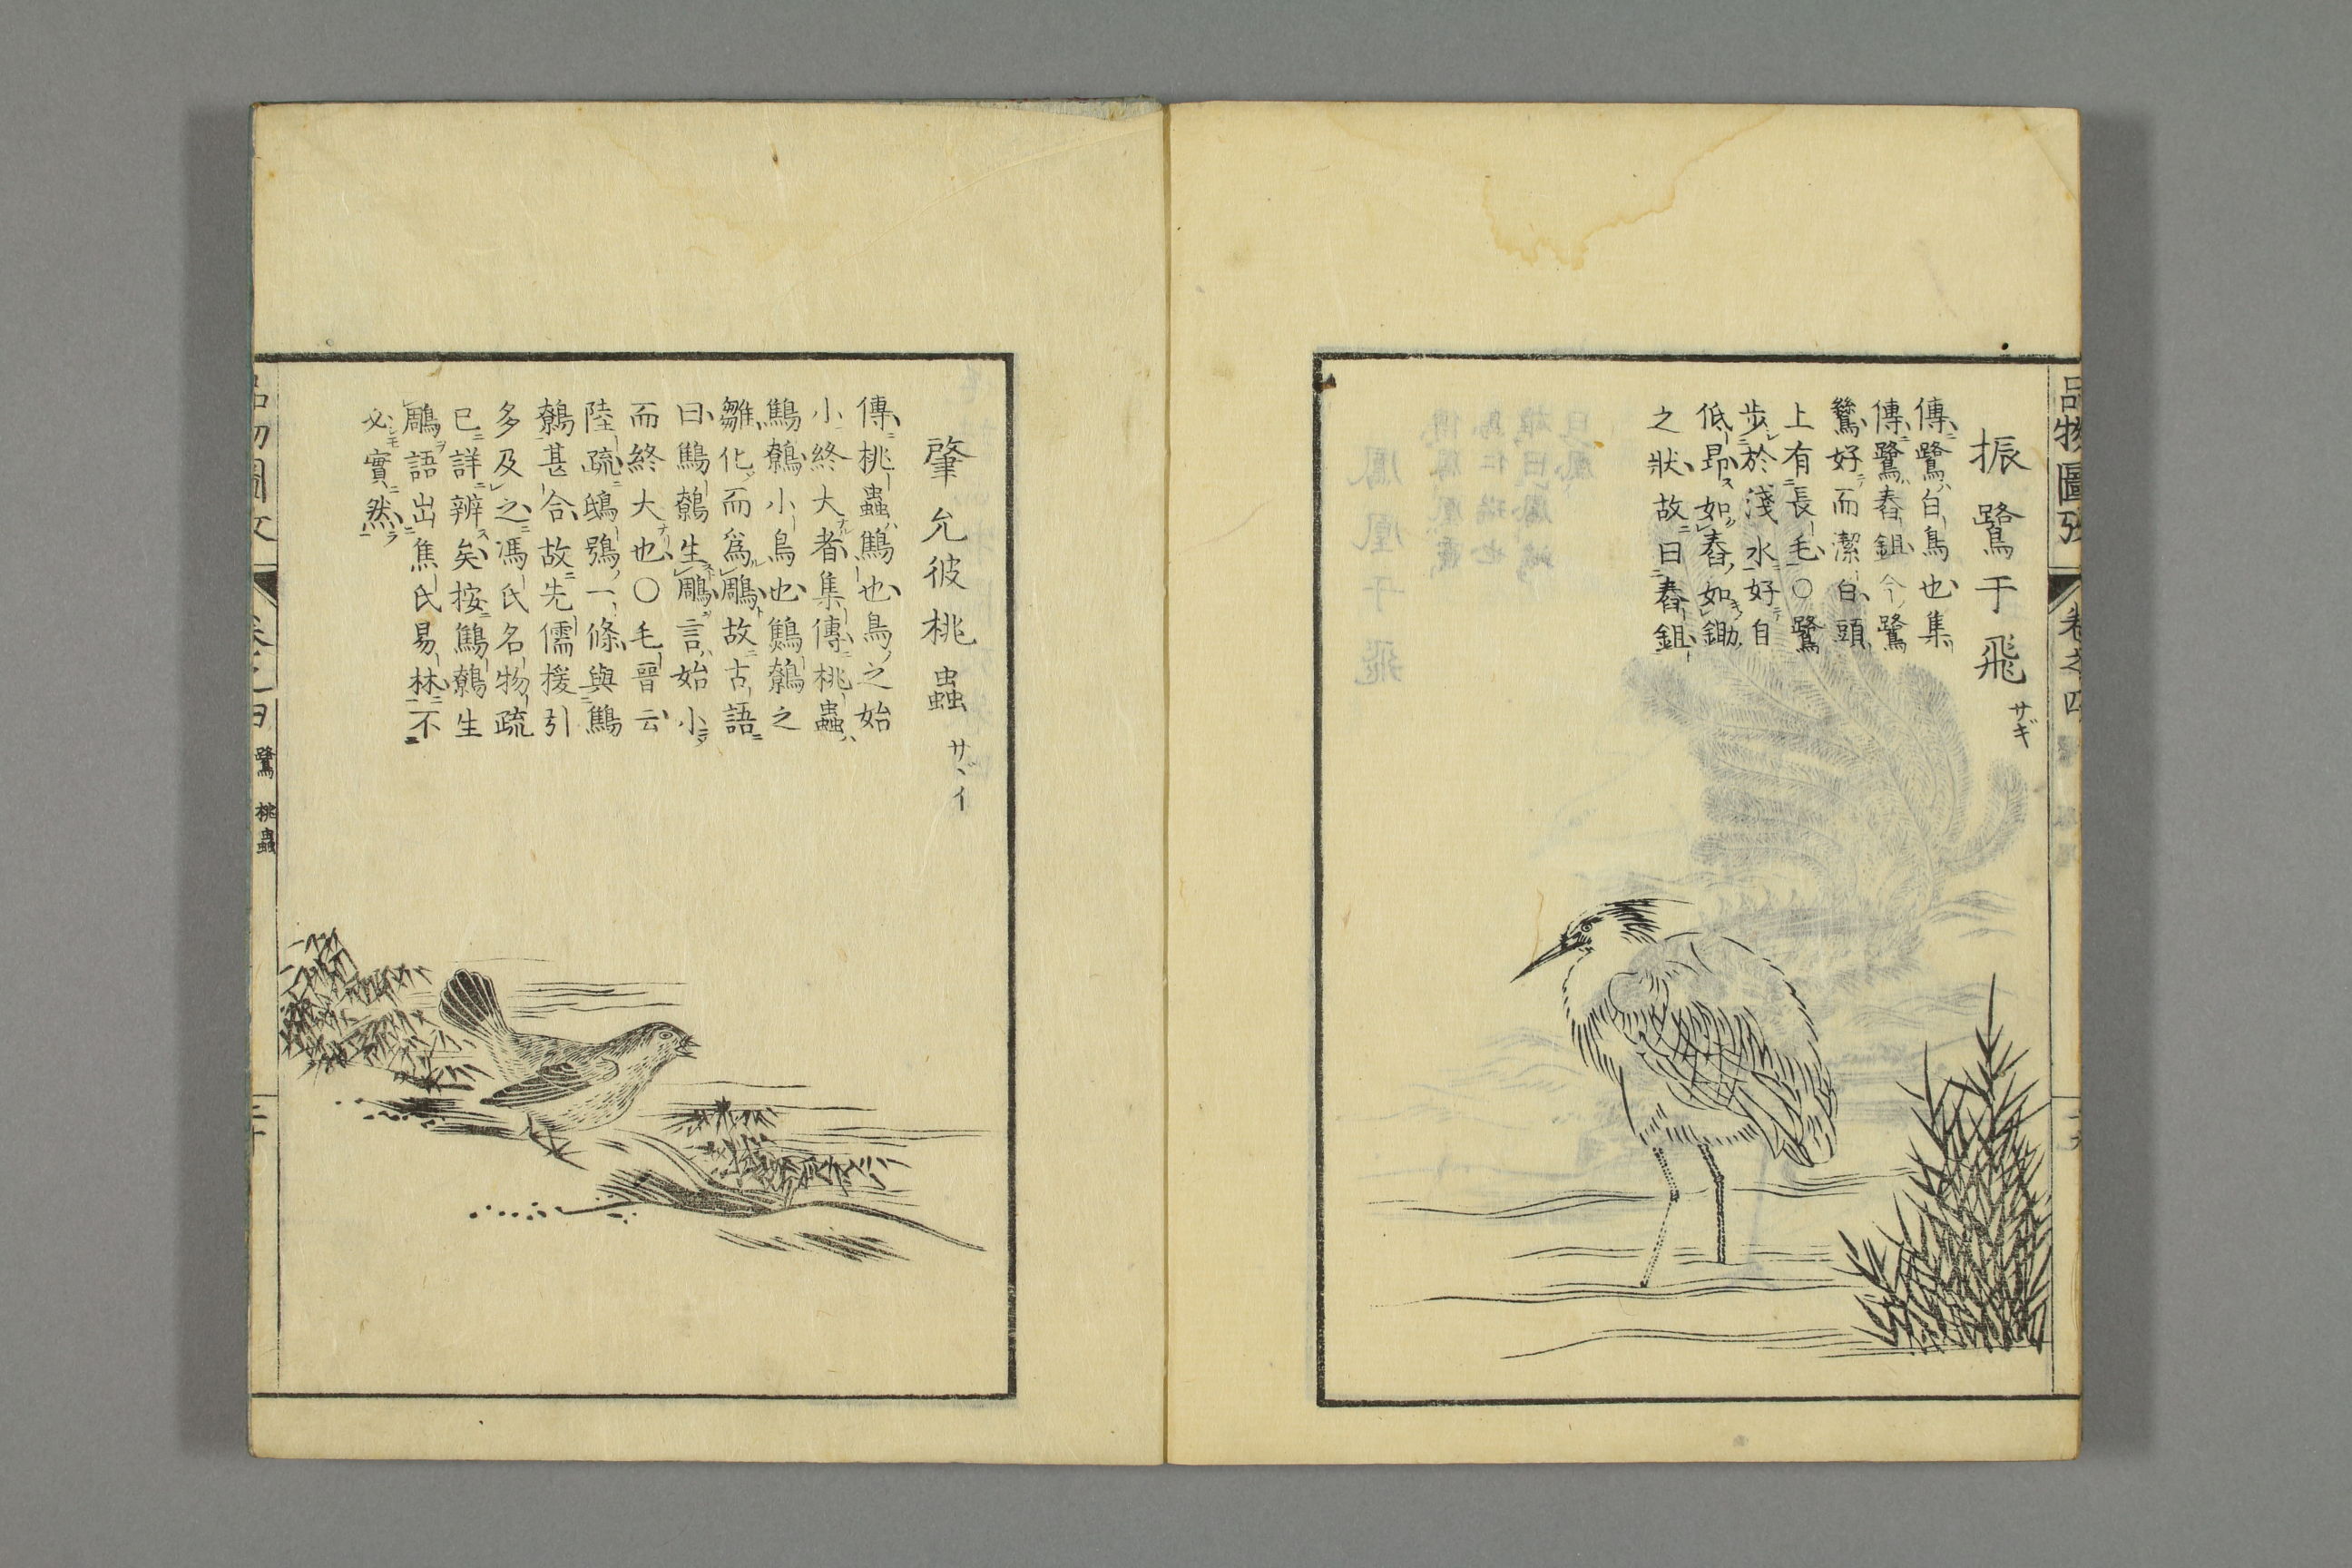 品物圖攷 卷之四
振鷺于飛 サギ
傳鷺白鳥也集
傳鷺舂鉏今鷺
鶿好而潔白頭
上有長毛○鷺
步於淺水好自
低昂如舂如鋤
之狀故曰舂鉏
肇允彼桃蟲 サヾイ
傳桃蟲鷦也鳥之始
小終大者集傳桃蟲
鷦鷯小鳥也鷦鷯之
雛化而爲鵰故古語
曰鷦鷯生鵰言始小
而終大也○毛晉云
陸疏鴟鴞一條與鷦
鷯甚合故先儒援引
多及之馮氏名物疏
已詳辨矣按鷦鷯生
鵰語出焦氏易林不
必實然
鷺 桃蟲